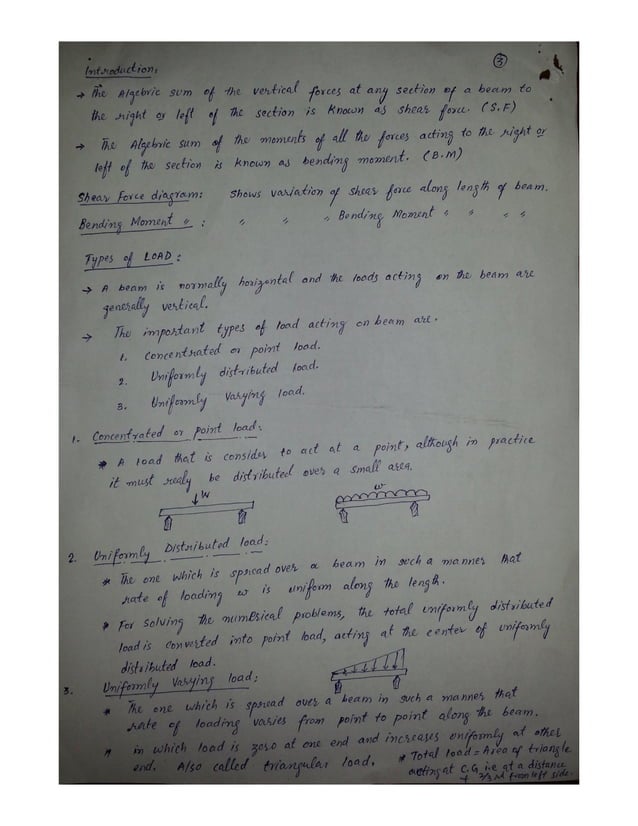 ③
Introduction:
→ The Algebric sum of the vertical forces at any section of a beam to
the right or left of the section is known as shear force. (S.F)
→ The Algebric sum of the moments of all the forces acting to the right or
left of the section is known as bending moment. (B.M)
Shear Force diagram: Shows variation of shear force along length of beam.
Bending Moment " : " " " Bending Moment " " " "
Types of LOAD:
→ A beam is normally horizontal and the loads acting on the beam are
generally vertical.
→ The important types of load acting on beam are.
1. Concentrated or point load.
2. Uniformly distributed load.
3. Uniformly Varying load.
1. Concentrated or point load:
* A load that is consider to act at a point, although in practice
it must realy be distributed over a small area.
W
w
2. Uniformly Distributed load:
* The one which is spread over a beam in such a manner that
rate of loading w is uniform along the length.
* For solving the numerical problems, the total uniformly distributed
load is converted into point load, acting at the center of uniformly
distributed load.
3. Uniformly Varying load:
* The one which is spread over a beam in such a manner that
rate of loading varies from point to point along the beam.
* in which load is zero at one end and increases uniformly at other
end. Also called triangular load. * Total load = Area of triangle
acting at C.G i.e at a distance
2/3rd from left side.